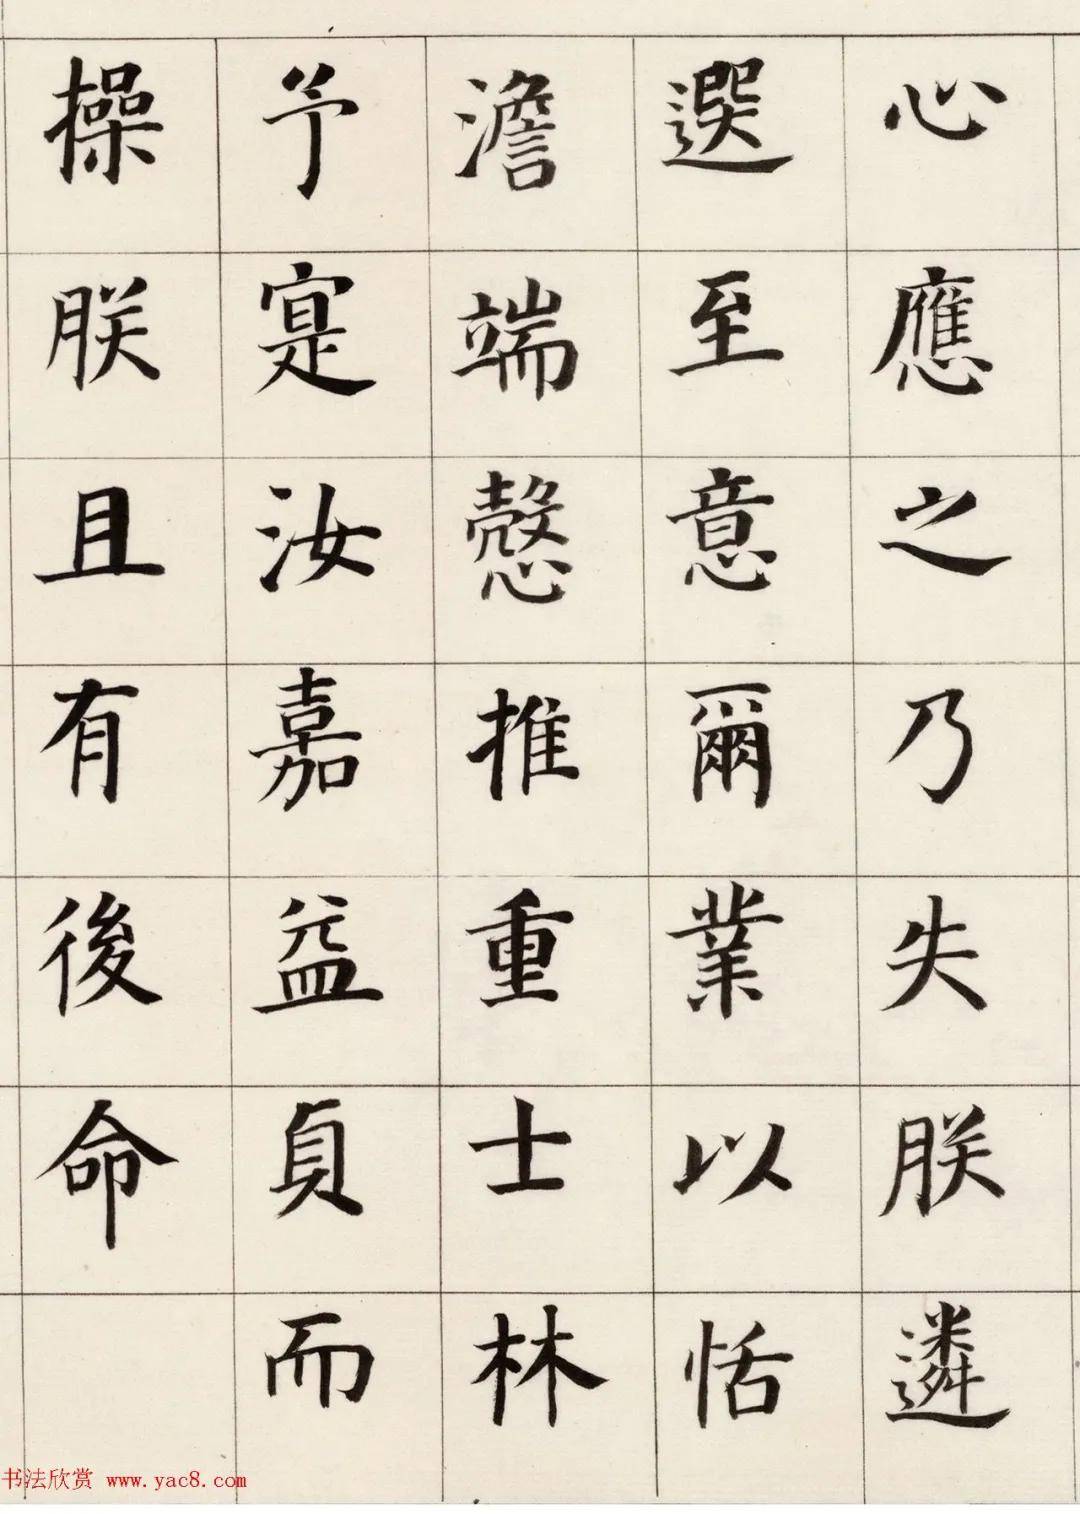 心應之乃失朕遴
選至意爾業以恬
澹端愨推重士林
予寔汝嘉益貞而
操朕且有後命
书法欣赏 www.yac8.com